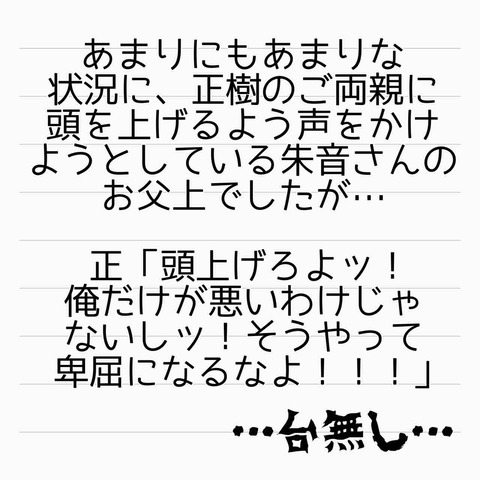 あまりにもあまりな
状況に、正樹のご両親に
頭を上げるよう声をかけ
ようとしている朱音さんの
お父上でしたが…
正「頭上げろよッ！
俺だけが悪いわけじゃ
ないしッ！そうやって
卑屈になるなよ！！！」
…台無し…